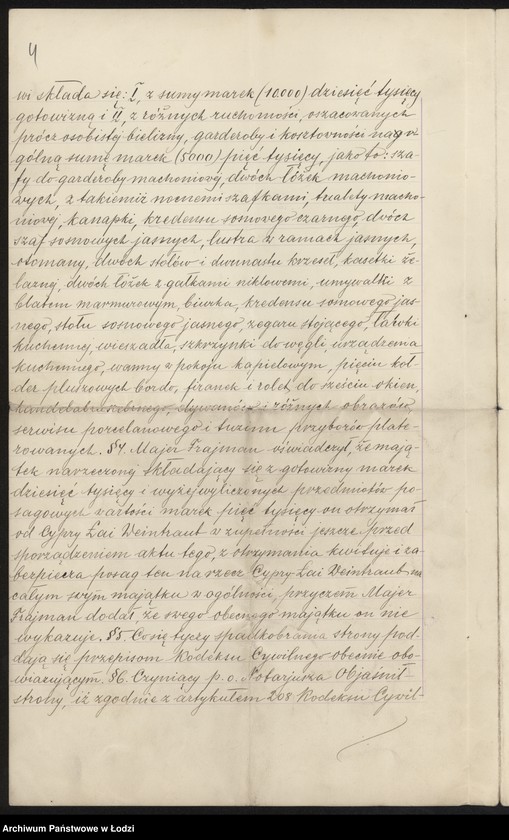 4
wi składa się: I, z sumy marek (10.000) dziesięć tysięcy
gotowizną i II, z różnych ruchomości, oszacowanych
prócz osobistej bielizny, garderoby i kosztowności na o-
gólną sumę marek (5000) pięć tysięcy, jako to: sza-
fy do garderoby machoniowej, dwóch łóżek machonio-
wych, z takiemiż nocnemi szafkami, tualety macho-
niowej, kanapki, kredensu sosnowego czarnego, dwóch
szaf sosnowych jasnych, lustra w ramach jasnych,
otomany, dwóch stołów i dwunastu krzeseł, kasetki że-
laznej, dwóch łóżek z gałkami niklowemi, umywalki z
blatem marmurowym, biurka, kredensu sosnowego jas-
nego, stołu sosnowego jasnego, zegaru stojącego, ławki
kuchennej, wieszadła, skrzynki do węgli, urządzenia
kuchennego, wanny w pokoju kąpielowym, pięciu koł-
der pluszowych bordo, firanek i rolet do sześciu okien,
kandelabra srebrnego, dywanów i różnych obrazów,
serwisu porcelanowego i tuzina przyborów plate-
rowanych. §4. Majer Frajman oświadczył, że mają-
tek narzeczonej składający się z gotowizny marek
dziesięć tysięcy i wyżej wyliczonych przedmiotów po-
sagowych wartości marek pięć tysięcy on otrzymał
od Cypry Łai Weintraut w zupełności jeszcze przed
sporządzeniem aktu tego, z otrzymania kwituje i za-
bezpiecza posag ten na rzecz Cypry Łai Weintraut na
całym swym majątku w ogólności, przyczem Majer
Frajman dodał, że swego obecnego majątku on nie
wykazuje. §5. Co się tyczy spadkobrania strony pod-
dają się przepisom Kodeksu Cywilnego obecnie obo-
wiązującym. §6. Czyniący p. o. Notarjusza objaśnił
strony, iż zgodnie z artykułem 208 Kodeksu Cywil-
Archiwum Państwowe w Łodzi